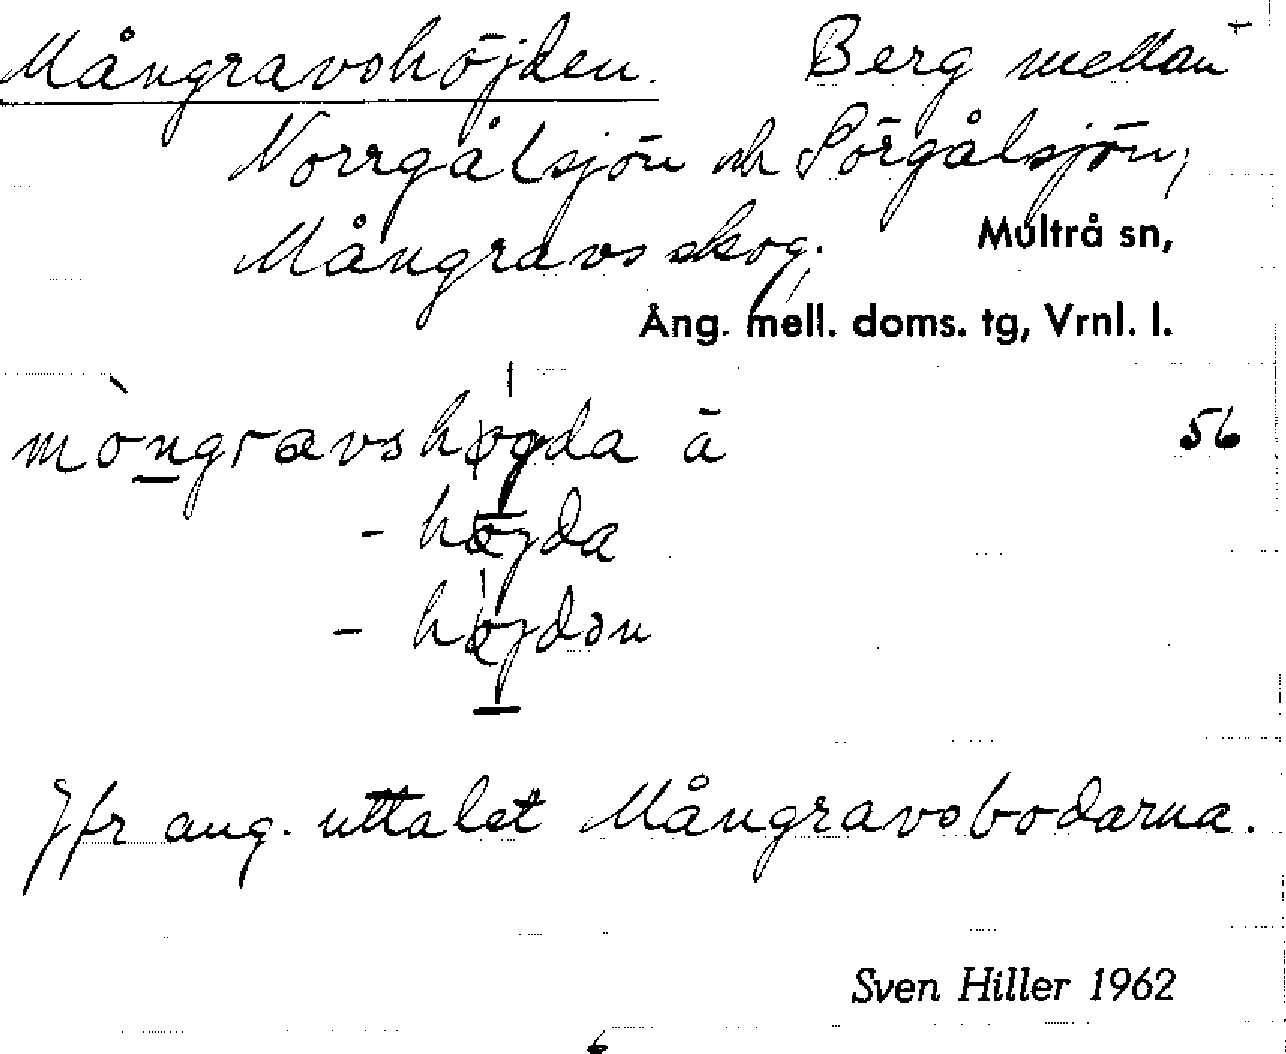 Mångravshöjden. Berg mellan
Norrgålsjön och Sörgålsjön,
Mångravsskog. Multrå sn,
Ång. mell. doms. tg, Vrnl. l.
mòngravshøgda ā 56
- højda
- højdən
Jfr ang. uttalet Mångravsbodarna.
Sven Hiller 1962
6